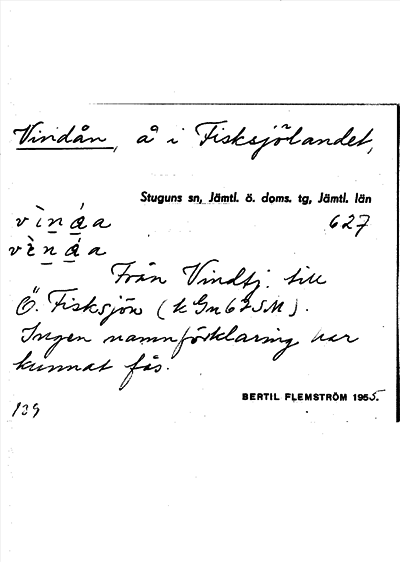 Vindån, å i Fisksjölandet,
Stuguns sn, Jämtl. ö. doms. tg, Jämtl. län
vìnáa 627
vènáa
Från Vindtj. till
Ö. Fisksjön (k Gn 62 SM).
Ingen namnförklaring har
kunnat fås.
BERTIL FLEMSTRÖM 1955.
139